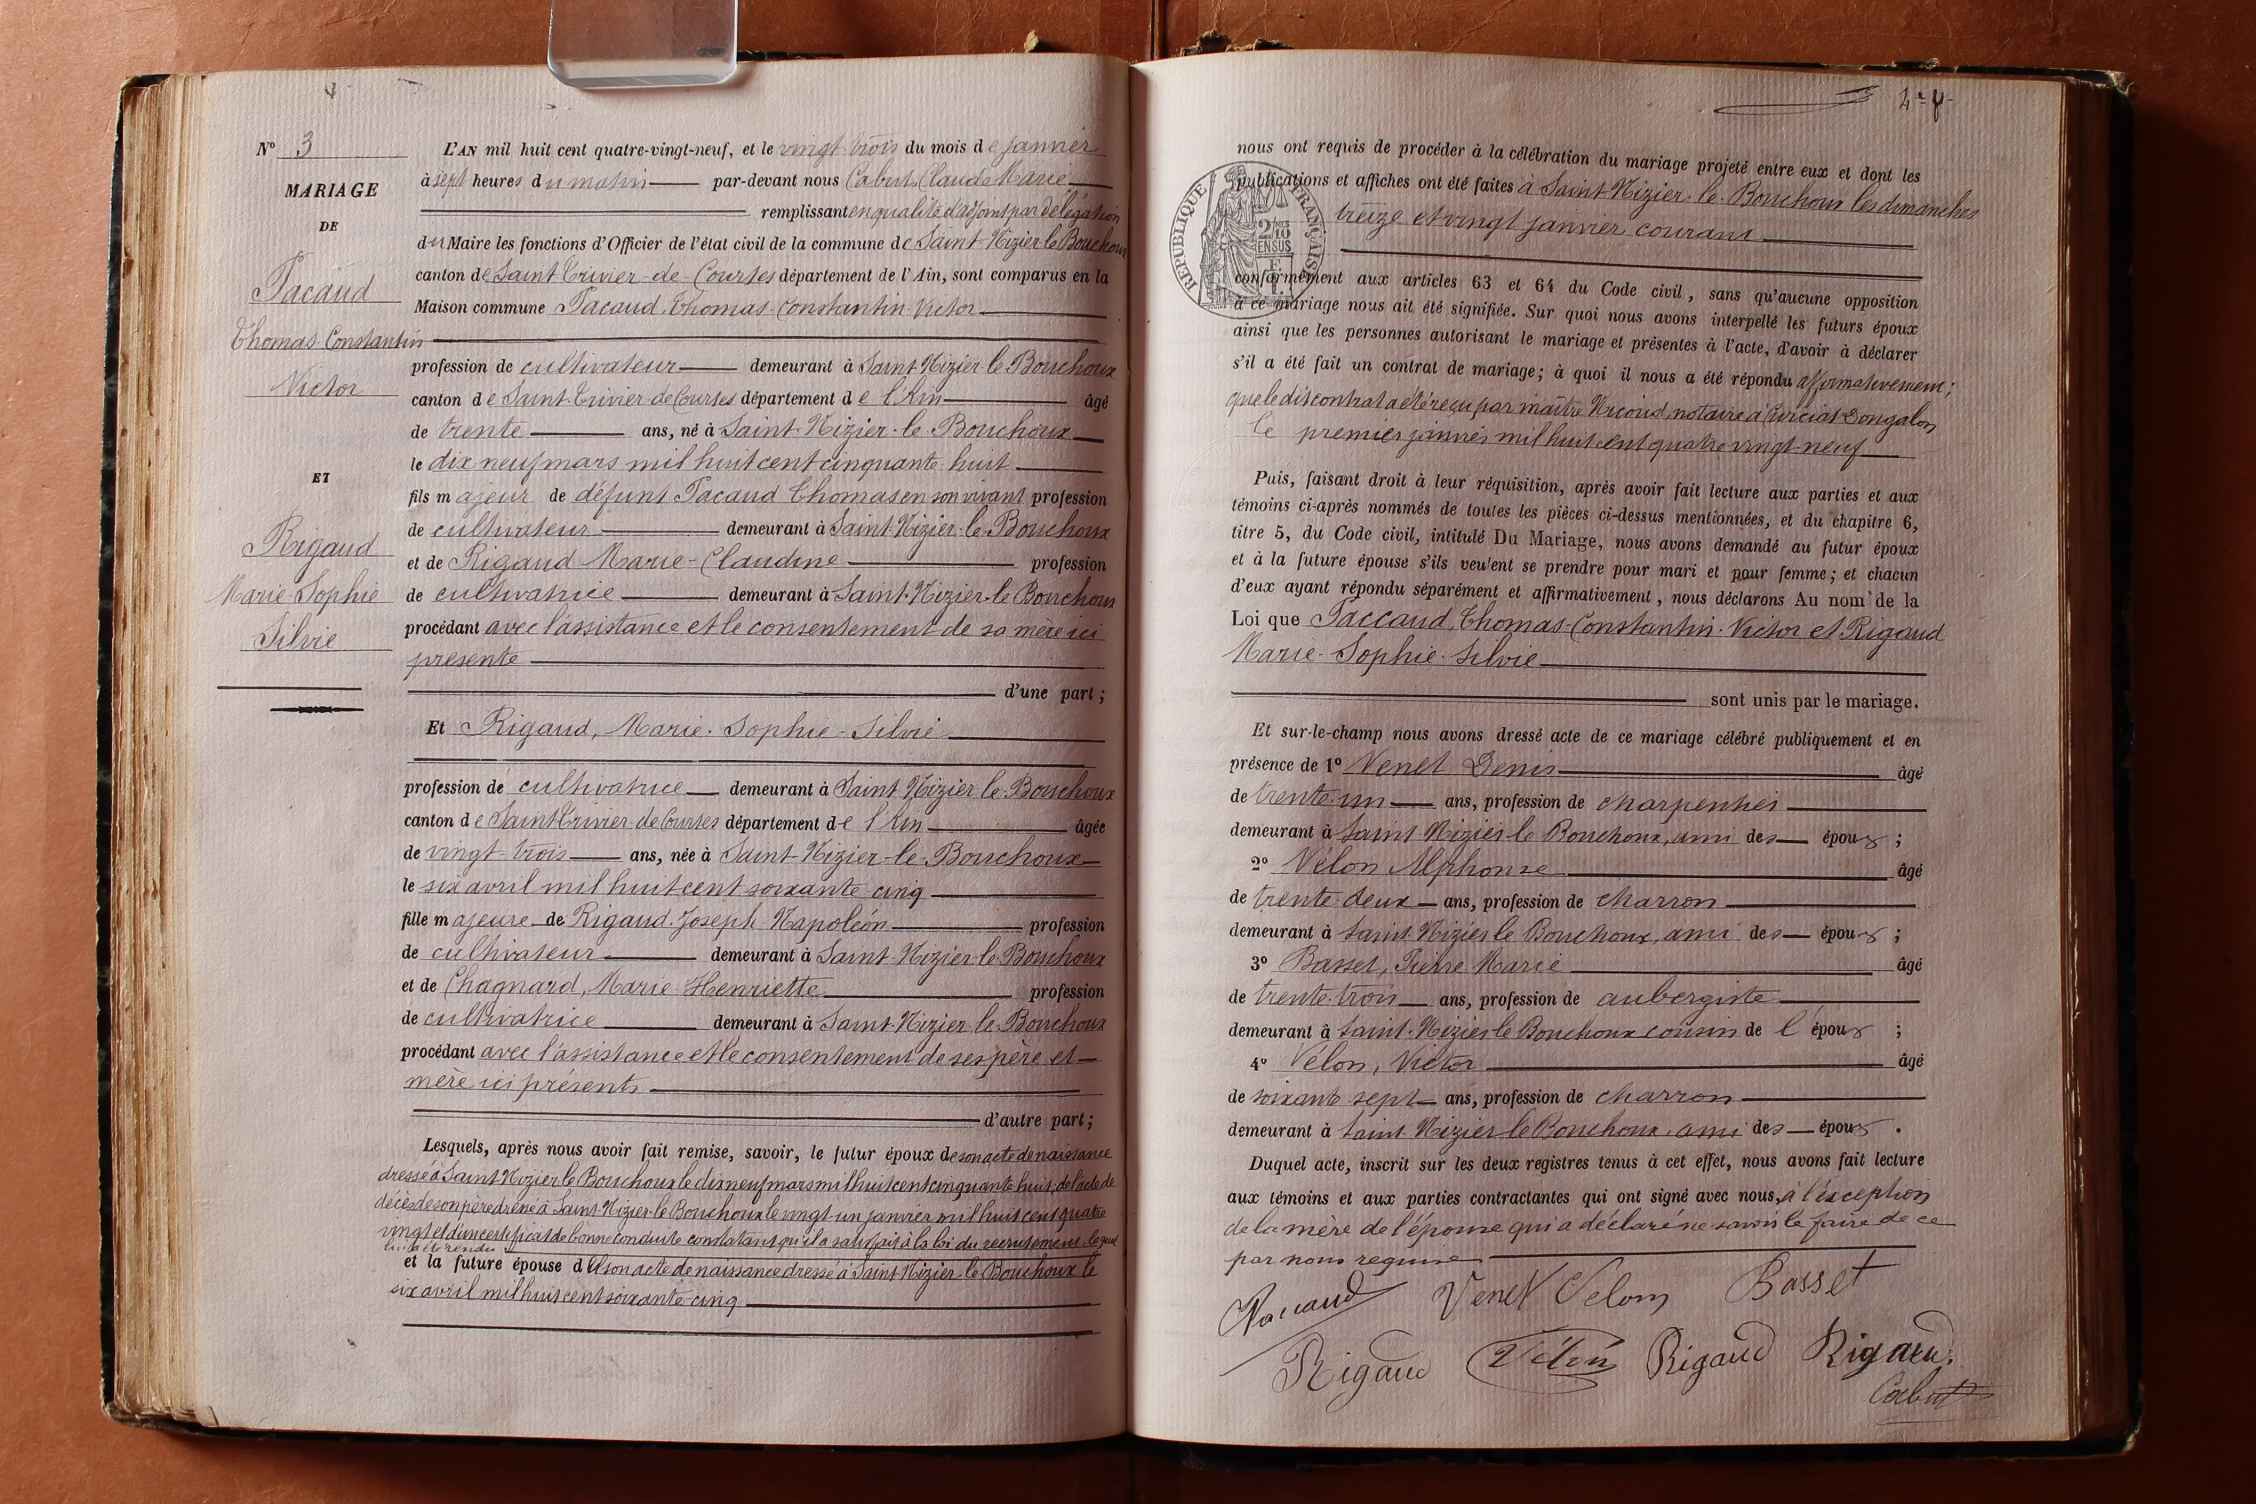 N° 3
MARIAGE
DE
Pacaud
Thomas Constantin
Victor
ET
Rigaud
Marie Sophie
Silvie
L'AN mil huit cent quatre-vingt-neuf, et le vingt trois du mois de janvier
à sept heures du matin par-devant nous Cabut, Claude Marie
remplissant en qualité d'adjoint par délégation
du Maire les fonctions d'Officier de l'état civil de la commune de Saint-Nizier le Bouchoux
canton de Saint Trivier-de-Courtes département de l'Ain, sont comparus en la
Maison commune Pacaud, Thomas Constantin Victor
profession de cultivateur demeurant à Saint Nizier le Bouchoux
canton de Saint-Trivier de Courtes département de l'Ain âgé
de trente ans, né à Saint-Nizier-le-Bouchoux
le dix neuf mars mil huit cent cinquante huit
fils majeur de défunt Pacaud Thomas en son vivant profession
de cultivateur demeurant à Saint-Nizier-le-Bouchoux
et de Rigaud Marie-Claudine profession
de cultivatrice demeurant à Saint-Nizier-le Bouchoux
procédant avec l'assistance et le consentement de sa mère ici
présente
d'une part ;
Et Rigaud, Marie-Sophie-Silvie
profession de cultivatrice demeurant à Saint Nizier le Bouchoux
canton de Saint Trivier de Courtes département de l'Ain âgée
de vingt-trois ans, née à Saint-Nizier-le Bouchoux
le six avril mil huit cent soixante cinq
fille majeure de Rigaud Joseph Napoléon profession
de cultivateur demeurant à Saint-Nizier-le-Bouchoux
et de Chagnard, Marie Henriette profession
de cultivatrice demeurant à Saint-Nizier le Bouchoux
procédant avec l'assistance et le consentement de ses père et
mère ici présents
d'autre part ;
Lesquels, après nous avoir fait remise, savoir, le futur époux de son acte de naissance
dressé à Saint Nizier le Bouchoux le dix neuf mars mil huit cent cinquante huit, de l'acte de
décès de son père dressé à Saint-Nizier-le Bouchoux le vingt un janvier mil huit cent quatre
vingt et d'un certificat de bonne conduite constatant qu'il a satisfait à la loi du recrutement lequel
lui a été rendu
et la future épouse de son acte de naissance dressé à Saint Nizier-le Bouchoux le
six avril mil huit cent soixante-cinq
nous ont requis de procéder à la célébration du mariage projeté entre eux et dont les
publications et affiches ont été faites à Saint-Nizier-le-Bouchoux les dimanches
treize et vingt janvier courant
RÉPUBLIQUE FRANÇAISE
2/10 EN SUS
conformément aux articles 63 et 64 du Code civil, sans qu'aucune opposition
à ce mariage nous ait été signifiée. Sur quoi nous avons interpellé les futurs époux
ainsi que les personnes autorisant le mariage et présentes à l'acte, d'avoir à déclarer
s'il a été fait un contrat de mariage ; à quoi il nous a été répondu affirmativement ;
que le dit contrat a été reçu par maître Nicoud, notaire à Curciat Dongalon
le premier janvier mil huit cent quatre vingt-neuf
Puis, faisant droit à leur réquisition, après avoir fait lecture aux parties et aux
témoins ci-après nommés de toutes les pièces ci-dessus mentionnées, et du chapitre 6,
titre 5, du Code civil, intitulé Du Mariage, nous avons demandé au futur époux
et à la future épouse s'ils veulent se prendre pour mari et pour femme ; et chacun
d'eux ayant répondu séparément et affirmativement, nous déclarons Au nom de la
Loi que Paccaud, Thomas-Constantin-Victor et Rigaud
Marie-Sophie-Silvie
sont unis par le mariage.
Et sur-le-champ nous avons dressé acte de ce mariage célébré publiquement et en
présence de 1° Venet Denis âgé
de trente-un ans, profession de charpentier
demeurant à Saint-Nizier-le Bouchoux, ami des époux ;
2° Vélon Alphonse âgé
de trente-deux ans, profession de charron
demeurant à Saint Nizier le Bouchoux, ami des époux ;
3° Basset, Pierre Marie âgé
de trente-trois ans, profession de aubergiste
demeurant à Saint-Nizier le Bouchoux cousin de l'époux ;
4° Vélon, Victor âgé
de soixante sept ans, profession de charron
demeurant à Saint Nizier le Bouchoux, ami des époux.
Duquel acte, inscrit sur les deux registres tenus à cet effet, nous avons fait lecture
aux témoins et aux parties contractantes qui ont signé avec nous, à l'exception
de la mère de l'épouse qui a déclaré ne savoir le faire de ce
par nous requise
Pacaud Venet Velon Basset
Rigaud Vélon Rigaud Rigaud
Cabut